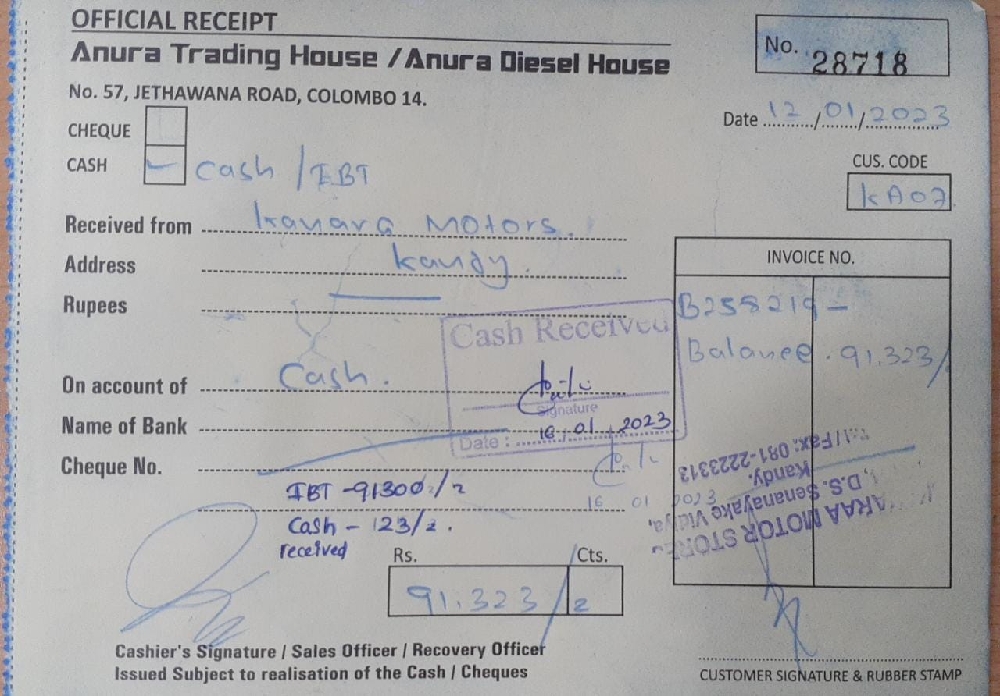 OFFICIAL RECEIPT
Anura Trading House / Anura Diesel House
No. 57, JETHAWANA ROAD, COLOMBO 14.
No. 28718
Date 12/01/2023
CHEQUE
CASH Cash / IBT
CUS. CODE
KA07
Received from Kanara Motors.
Address Kandy.
Rupees
INVOICE NO.
B258219 -
Balance. 91.323/
Cash Received
On account of Cash.
Signature
Name of Bank
Date : 16/01/2023
Cheque No.
IBT -91300/2
16 01 2023
Cash - 123/2.
received
ARAA MOTOR STORE
D.S. Senanayake Vidiya,
Kandy.
Tel/Fax: 081-2223313
Rs. Cts.
91.323/2
Cashier's Signature / Sales Officer / Recovery Officer
Issued Subject to realisation of the Cash / Cheques
CUSTOMER SIGNATURE & RUBBER STAMP